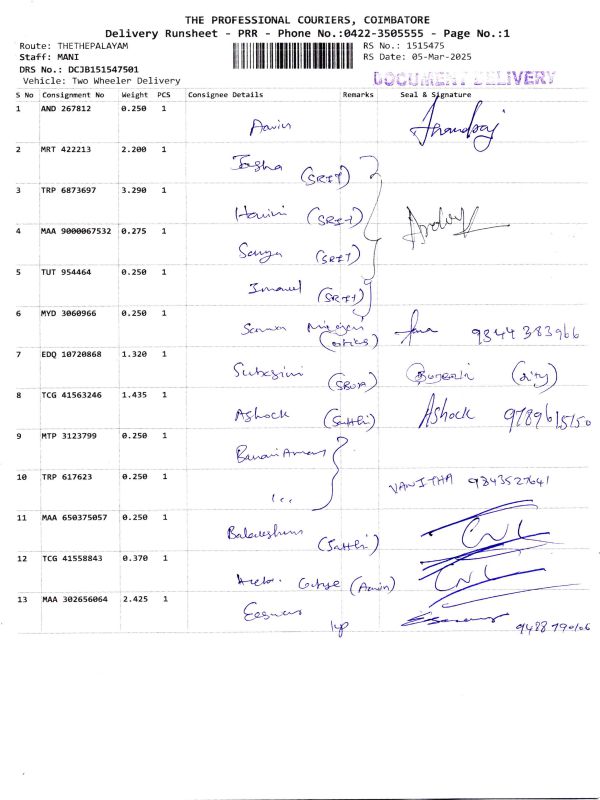 THE PROFESSIONAL COURIERS, COIMBATORE
Delivery Runsheet - PRR - Phone No.:0422-3505555 - Page No.:1
Route: THETHEPALAYAM RS No.: 1515475
Staff: MANI RS Date: 05-Mar-2025
DRS No.: DCJB151547501
Vehicle: Two Wheeler Delivery DOCUMENT DELIVERY
S No Consignment No Weight PCS Consignee Details Remarks Seal & Signature
1 AND 267812 0.250 1
2 MRT 422213 2.200 1 (SRIT)
3 TRP 6873697 3.290 1 Harini (SRIT)
4 MAA 9000067532 0.275 1 Sanya (SRIT)
5 TUT 954464 0.250 1 Imanuel (SRIT)
6 MYD 3060966 0.250 1 9344383966
7 EDQ 10720868 1.320 1 Subasini
8 TCG 41563246 1.435 1 Ashock (Satthi) Ashock 9789615150
9 MTP 3123799 0.250 1
10 TRP 617623 0.250 1 VANITHA 9843527641
11 MAA 650375057 0.250 1 (Satthi)
12 TCG 41558843 0.370 1
13 MAA 302656064 2.425 1 9488790106